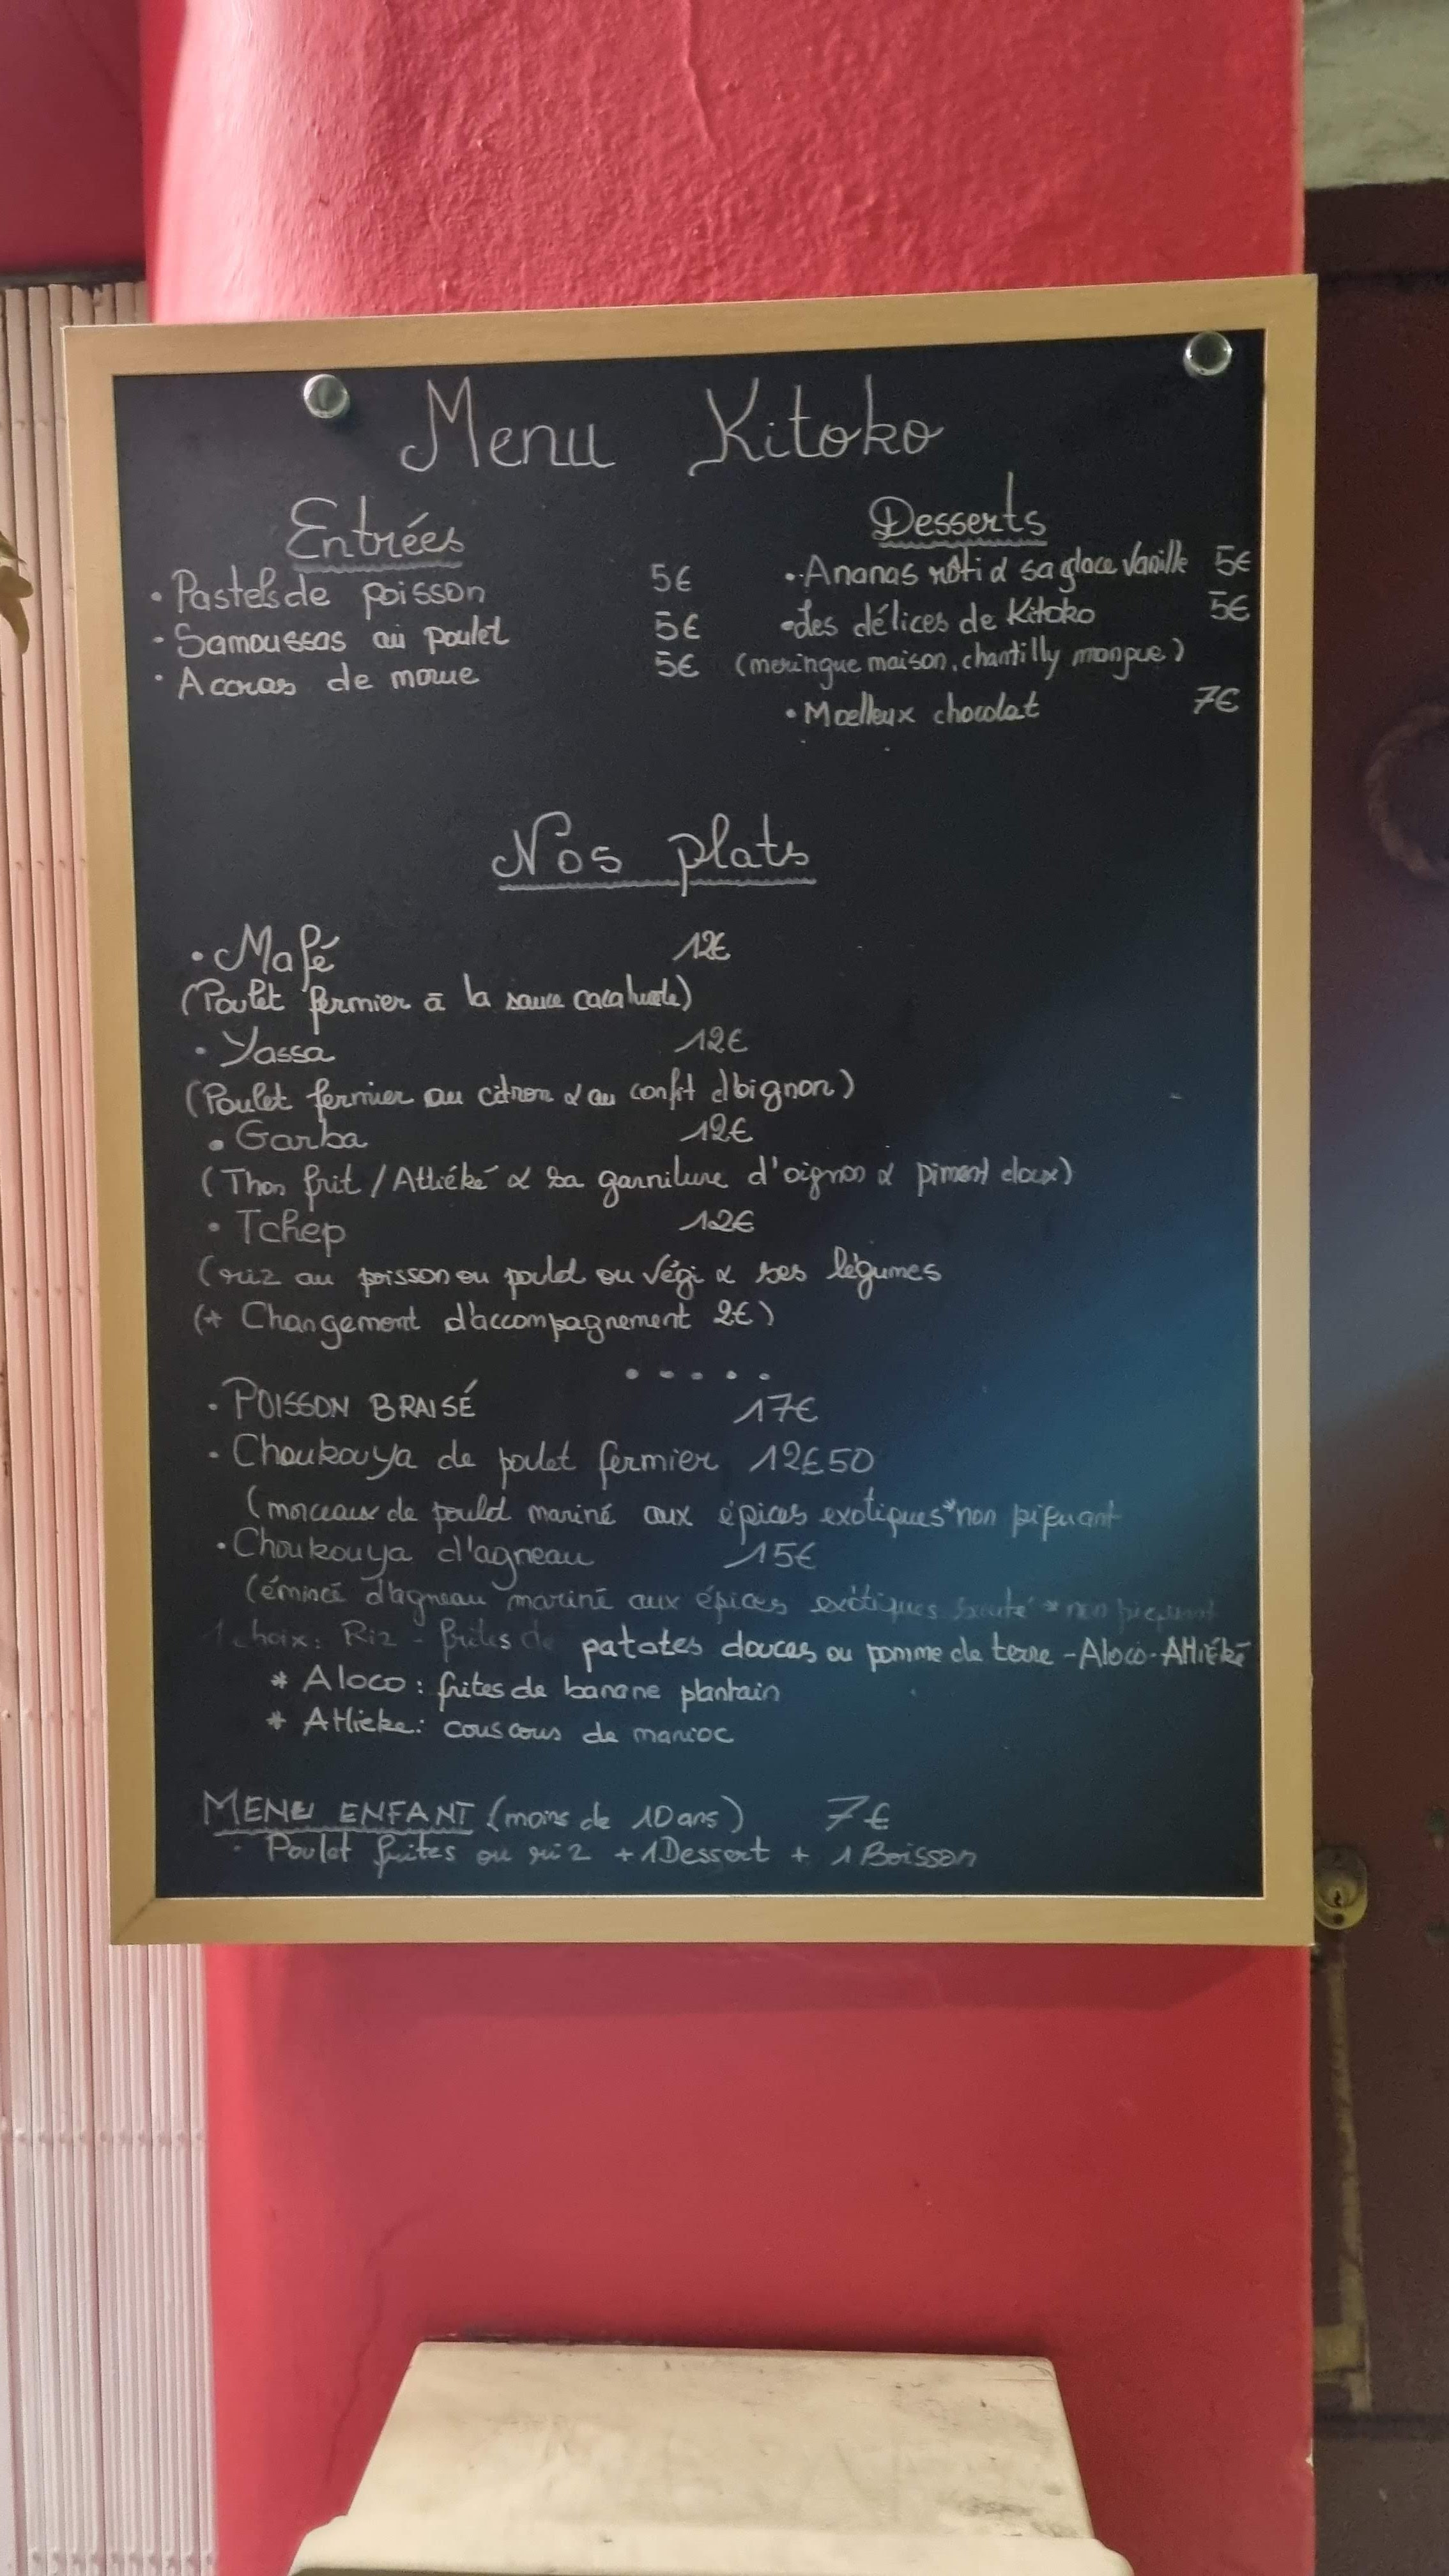 Menu Kitoko
Entrées
• Pastels de poisson 5€
• Samoussas au poulet 5€
• Accras de morue 5€
Desserts
• Ananas rôti & sa glace Vanille 5€
• Les délices de Kitoko 5€
(meringue maison, chantilly mangue)
• Moelleux chocolat 7€
Nos plats
• Mafé 12€
(Poulet fermier à la sauce cacahuète)
• Yassa 12€
(Poulet fermier au citron & au confit d'oignon)
• Garba 12€
(Thon frit / Attiéké & sa garniture d'oignon & piment doux)
• Tchep 12€
(riz au poisson ou poulet ou végi & ses légumes
(* Changement d'accompagnement 2€)
.....
• POISSON BRAISÉ 17€
• Choukouya de poulet fermier 12€50
(morceaux de poulet mariné aux épices exotiques *non piquant
• Choukouya d'agneau 15€
(émincé d'agneau mariné aux épices exotiques * non piquant
1 choix: Riz - frites de patates douces ou pomme de terre - Aloco - Attiéké
* Aloco: frites de banane plantain
* Attieke: couscous de manioc
MENU ENFANT (moins de 10 ans) 7€
• Poulet frites ou riz + 1 Dessert + 1 Boisson